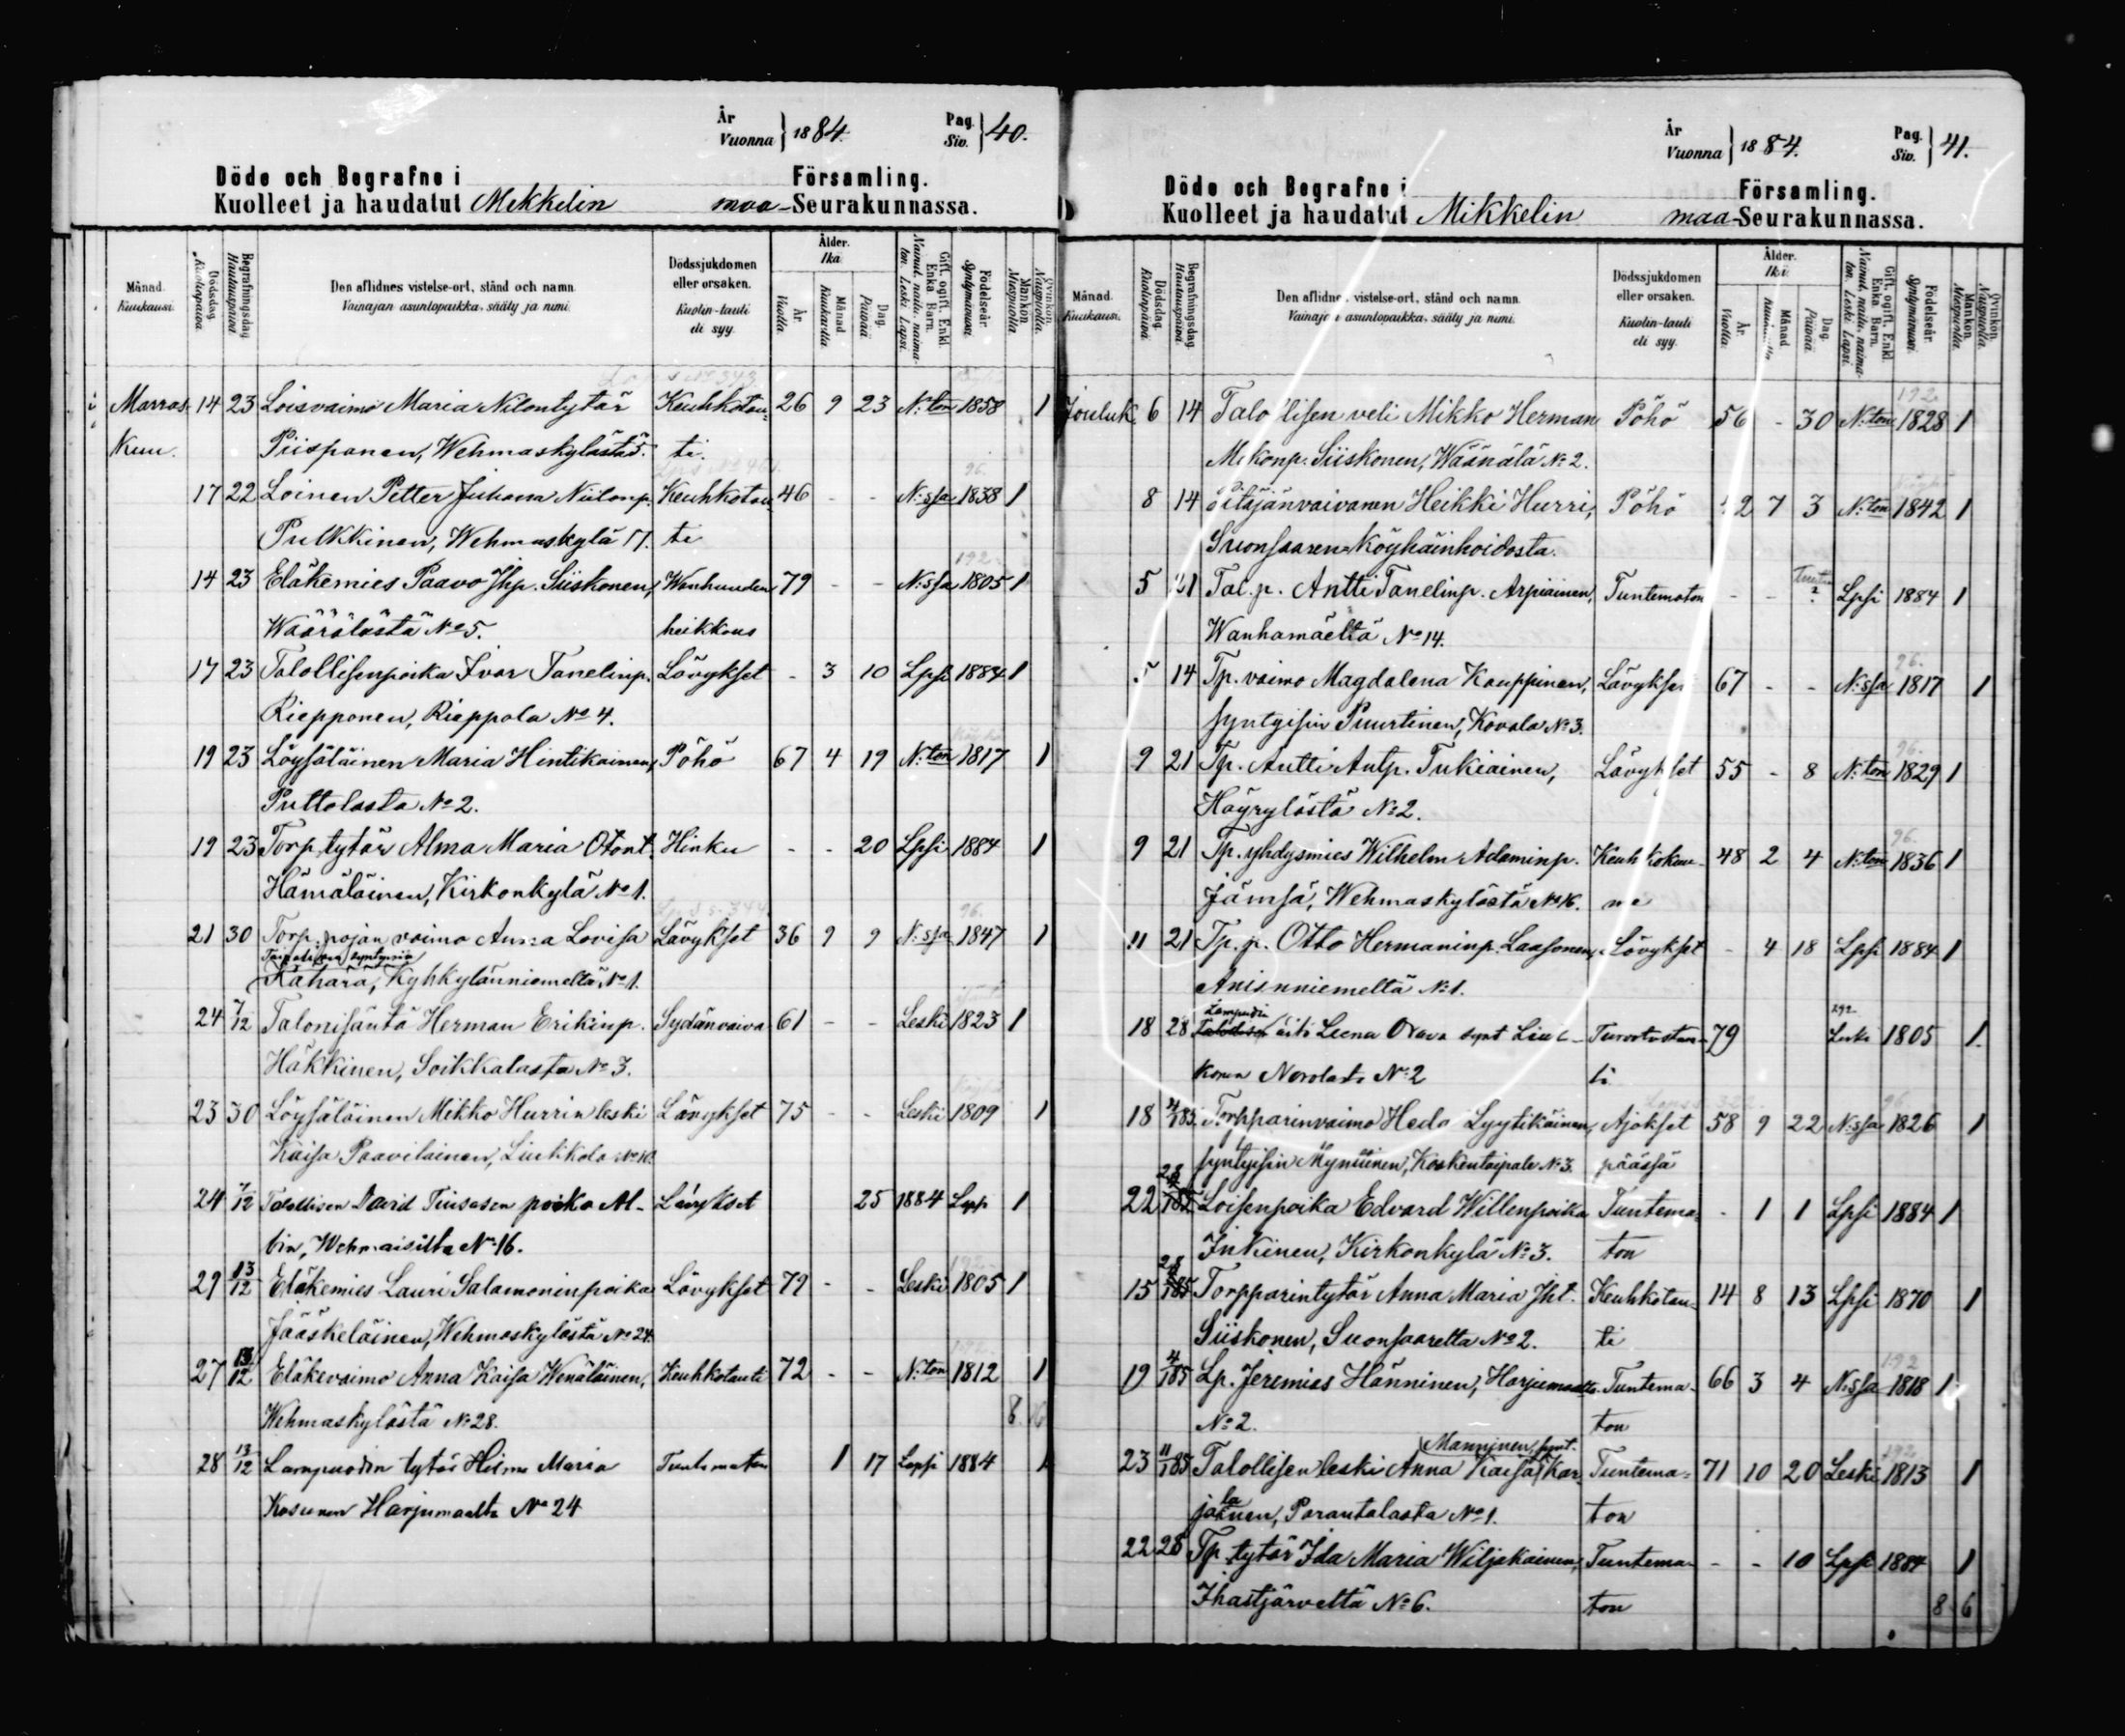 År
Vuonna } 1884.
Pag.
Siv. } 40.
Döde och Begrafne i Församling.
Kuolleet ja haudatut Mikkelin maa-Seurakunnassa.
Månad. Kuukausi. Dödsdag. Kuolinpäivä. Begrafningsdag. Hautauspäivä. Den aflidnes vistelse-ort, stånd och namn. Vainajan asuntopaikka, sääty ja nimi. Dödssjukdomen eller orsaken. Kuolin-tauti eli syy. Ålder. Ikä. År. Vuotta. Månad. Kuukautta. Dag. Päivää. Gift, ogift, Enkl. Enka Barn. Nainut, naima-ton. Leski. Lapsi. Födelseår. Syntymävuosi. Mankön. Miespuolia. Qvinkön. Naispuolia.
Marras- 14 23 Loisvaimo Maria Niilontytär Keuhkotau- 26 9 23 N:ton 1858 1
kuu. Piispanen, Wehmaskylästä. ti.
17 22 Loinen Petter Juhana Niilonp. Keuhkotau- 46 - - N:ssa 1838 1
Pulkkinen, Wehmaskylä 17. ti
192.
14 23 Eläkemies Paavo Jhp. Siiskonen, Wanhuuden 79 - - N:ssa 1805 1
Wäärälästä No 5. heikkous
17 23 Talollisenpoika Ivar Tanelinp. Lävykset - 3 10 Lpsi 1884 1
Riepponen, Rieppola No 4.
19 23 Löysäläinen Maria Hintikainen, Pöhö 67 4 19 N:ton 1817 1
Puttolasta No 2.
19 23 Torp. tytär Alma Maria Otont. Hinku - - 20 Lpsi 1884 1
Hämäläinen, Kirkonkylä No 1.
96.
21 30 Torp. pojan vaimo Anna Lovisa Lävykset 36 9 9 N:ssa 1847 1
Kähärä, Kyhkylänniemeltä No 1.
24 7/12 Talonisäntä Herman Erikinp. Sydänvaiva 61 - - Leski 1823 1
Häkkinen, Soikkalasta No 3.
23 30 Löysäläinen Mikko Hurrin leski Lävykset 75 - - Leski 1809 1
Kaisa Paavilainen, Liukkola No 10.
24 7/12 Talollisen David Tiusasen poika Al- Lävykset 25 1884 Lapsi 1
bin, Wehmaisilta No 16.
29 13/12 Eläkemies Lauri Salamoninpoika Lävykset 79 - - Leski 1805 1
Jääskeläinen, Wehmaskylästä No 24.
192.
27 13/12 Eläkevaimo Anna Kaisa Wenäläinen, Keuhkotauti 72 - - N:ton 1812 1
Wehmaskylästä No 28. 8
28 13/12 Lampuodin tytär Hilma Maria Tuntematon 1 17 Lapsi 1884 1
Kosunen Harjumaalta No 24
År
Vuonna } 1884.
Pag.
Siv. } 41.
Döde och Begrafne i Församling.
Kuolleet ja haudatut Mikkelin maa-Seurakunnassa.
Månad. Kuukausi. Dödsdag. Kuolinpäivä. Begrafningsdag. Hautauspäivä. Den aflidnes vistelse-ort, stånd och namn. Vainajan asuntopaikka, sääty ja nimi. Dödssjukdomen eller orsaken. Kuolin-tauti eli syy. Ålder. Ikä. År. Vuotta. Månad. Dag. Päivää. Gift, ogift, Enkl. Enka Barn. Nainut, naima-ton. Leski. Lapsi. Födelseår. Syntymävuosi. Mankön. Miespuolia. Qvinkön. Naispuolia.
192
Jouluk. 6 14 Talollisen veli Mikko Herman Pöhö 56 - 30 N:ton 1828 1
Mikonp. Siiskonen, Wäänälä No 2.
8 14 Pitäjänvaivanen Heikki Hurri, Pöhö 42 7 3 N:ton 1842 1
Suonsaaren Köyhäinhoidosta.
5 21 Tal. p. Antti Tanelinp. Arpiainen, Tuntematon - - 2 Lpsi 1884 1
Wanhamäeltä No 14.
96.
5 14 Tp. vaimo Magdalena Kauppinen, Lävykset 67 - - N:ssa 1817 1
syntyisin Puurtinen, Kovala No 3.
96.
9 21 Tp. Antti Antp. Tukiainen, Lävykset 55 - 8 N:ton 1829 1
Häyrylästä No 2.
96.
9 21 Tp. yhdysmies Wilhelm Adaminp. Keuhkokuu- 48 2 4 N:ton 1836 1
Jämsä, Wehmaskylästä No 16. me
11 21 Tp. p. Otto Hermaninp. Laasonen, Lävykset - 4 18 Lpsi 1884 1
Anisnniemeltä No 1.
Lampuodin 192
18 28 Talollisen äiti Leena Orava synt Liuk- Turvotustau- 79 Leski 1805 1.
konen Norolasta No 2 ti
96
18 4/185. Torpparinvaimo Heda Lyytikäinen, Ajokset 58 9 22 N:ssa 1826 1
syntyisin Mynttinen, Koskentaipale No 3. päässä
22 28 Loisenpoika Edvard Willenpoika Tuntema- - 1 1 Lpsi 1884 1
Inkinen, Kirkonkylä No 3. ton
15 28 Torpparintytär Anna Maria Jht. Keuhkotau- 14 8 13 Lpsi 1870 1
Siiskonen, Suonsaarelta No 2. ti
192
19 4/185 Lp. Jeremias Hänninen, Harjumaalta Tuntema- 66 3 4 N:ssa 1818 1
No 2. ton
Manninen, synt. 192
23 11/185 Talollisen leski Anna Kaisa Kar- Tuntema- 71 10 20 Leski 1813 1
jalainen, Parantalasta No 1. ton
22 28 Tp. tytär Ida Maria Wiljakainen, Tuntema- - - 10 Lpsi 1884 1
Ihastjärveltä No 6. ton 8 6